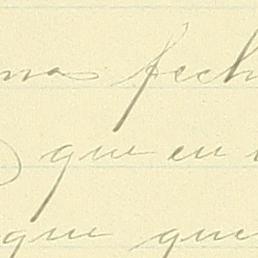 mas fech
que eu
que que